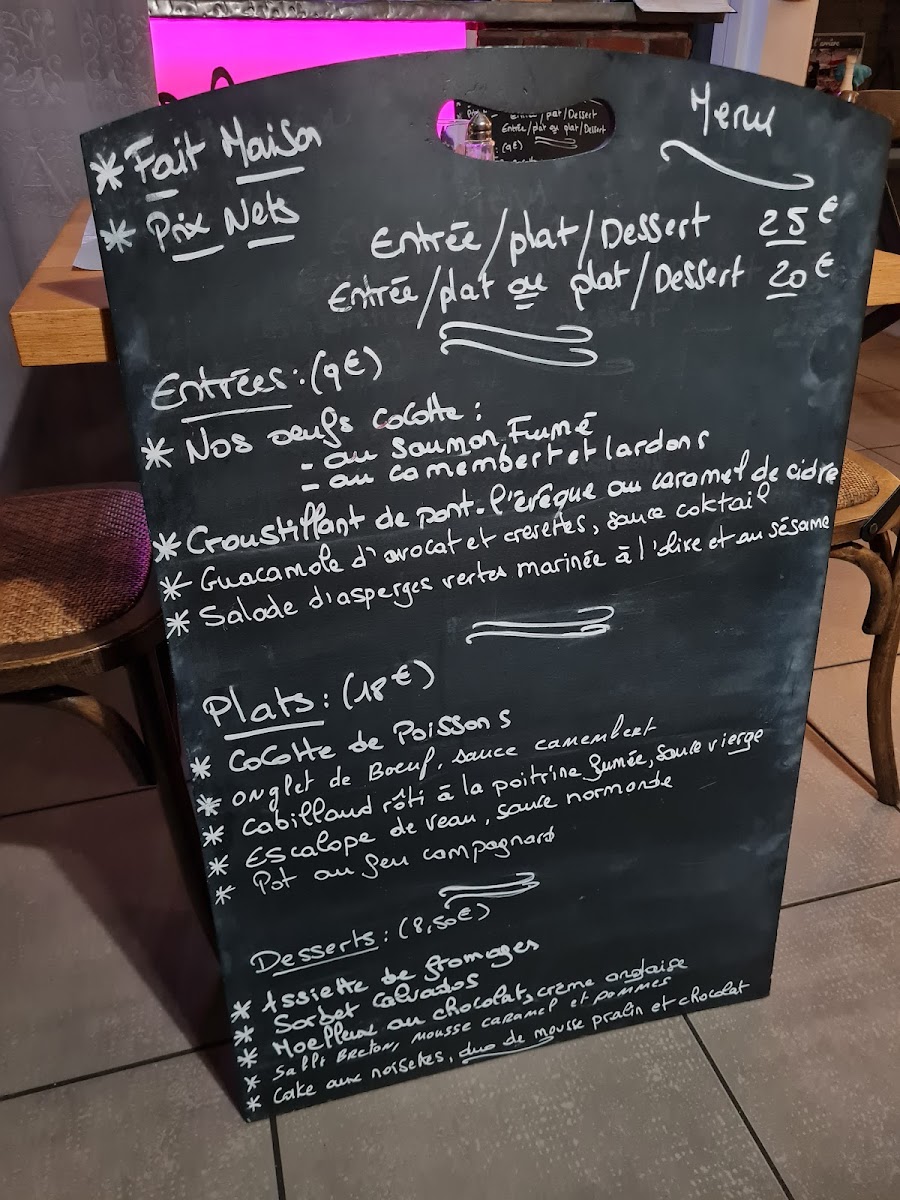 * Fait Maison
* Prix Nets
Menu
Entrée/plat/Dessert 25€
Entrée/plat ou plat/Dessert 20€
Entrées : (9€)
* Nos oeufs cocotte :
- au Saumon Fumé
- au camembert et lardons
* Croustillant de pont-l'évêque au caramel de cidre
* Guacamole d'avocat et crevettes, sauce coktail
* Salade d'asperges vertes marinée à l'olive et au sésame
Plats : (18€)
* Cocotte de Poissons
* Onglet de Boeuf, sauce camembert
* Cabillaud rôti à la poitrine fumée, sauce vierge
* Escalope de veau, sauce normande
* Pot au feu campagnard
Desserts : (8,50€)
* Assiette de fromages
* Sorbet Calvados
* Moelleux au chocolat, crème anglaise
* Sablé Breton, mousse caramel et pommes
* Cake aux noisettes, duo de mousse pralin et chocolat